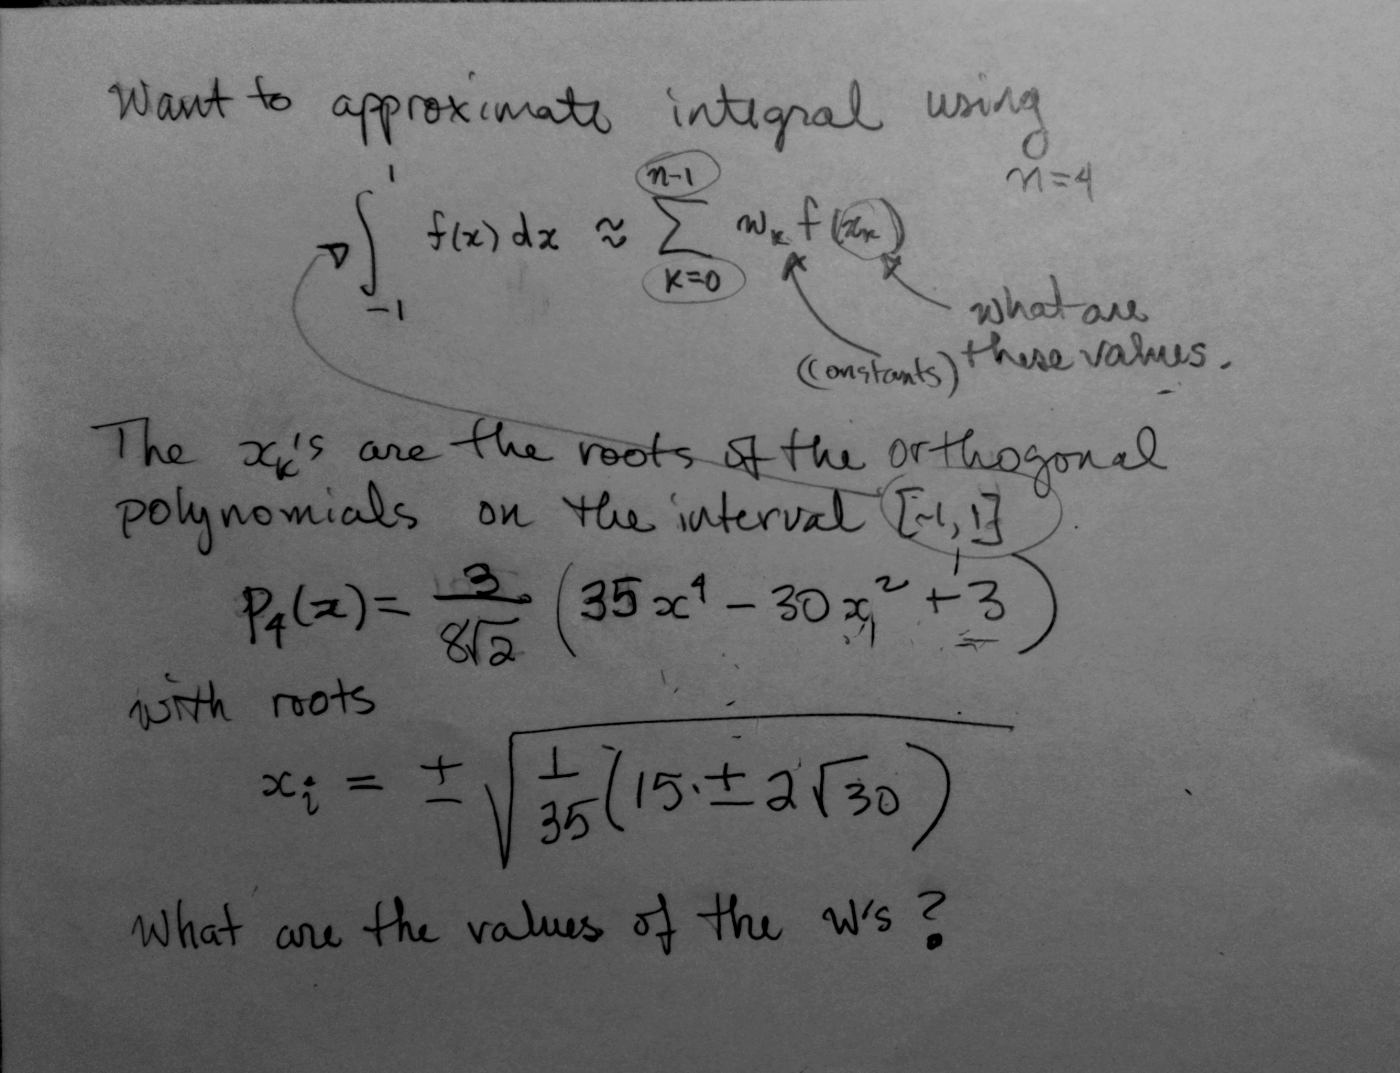 Want to approximate integral using
n=4
∫_{-1}^{1} f(x) dx ≈ ∑_{k=0}^{n-1} w_k f(x_k)
what are
(constants) these values.
The x_k's are the roots of the orthogonal
polynomials on the interval [-1, 1].
P_4(x) = \frac{3}{8√2} (35x^4 - 30x^2 + 3)
with roots
x_i = ± √(\frac{1}{35}(15 ± 2√30))
What are the values of the w's?